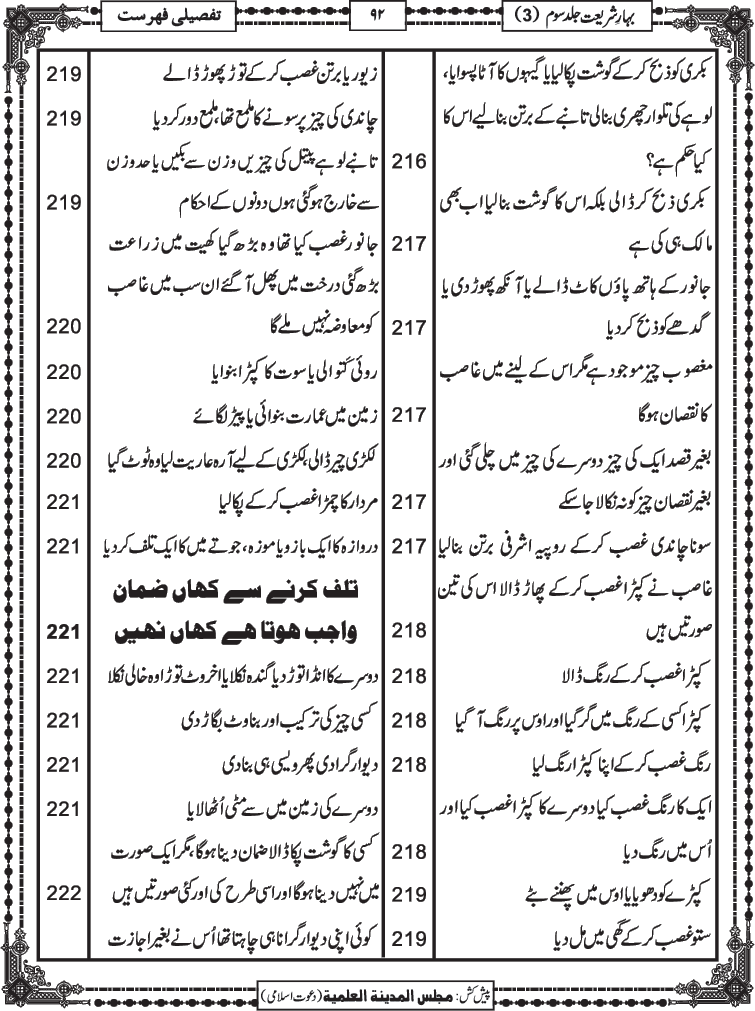 بہارِ شریعت جلد سوم (3)
۹۲
تفصیلی فہرست
بکری کو ذبح کرکے گوشت پکالیا یا گیہوں کا آٹا پسوایا،
لوہے کی تلوار چھری بنالی تانبے کے برتن بنالیے اس کا
کیا حکم ہے؟ 216
بکری ذبح کر ڈالی بلکہ اس کا گوشت بنالیا اب بھی
مالک ہی کی ہے 217
جانور کے ہاتھ پاؤں کاٹ ڈالے یا آنکھ پھوڑ دی یا
گدھے کو ذبح کردیا 217
مغصوب چیز موجود ہے مگر اس کے لینے میں غاصب
کا نقصان ہوگا 217
بغیر قصد ایک کی چیز دوسرے کی چیز میں چلی گئی اور
بغیر نقصان چیز کو نہ نکالا جاسکے 217
سونا چاندی غصب کر کے روپیہ اشرفی برتن بنالیا 217
غاصب نے کپڑا غصب کرکے پھاڑ ڈالا اس کی تین
صورتیں ہیں 218
کپڑا غصب کر کے رنگ ڈالا 218
کپڑا کسی کے رنگ میں گر گیا اور اوس پر رنگ آ گیا 218
رنگ غصب کر کے اپنا کپڑا رنگ لیا 218
ایک کا رنگ غصب کیا دوسرے کا کپڑا غصب کیا اور
اُس میں رنگ دیا 218
کپڑے کو دھویا یا اوس میں پھننے بٹے 219
ستو غصب کر کے گھی میں مل دیا 219
زیور یا برتن غصب کر کے توڑ پھوڑ ڈالے 219
چاندی کی چیز پر سونے کا ملمع تھا، ملمع دور کردیا 219
تانبے لوہے پیتل کی چیزیں وزن سے بکیں یا حد وزن
سے خارج ہوگئی ہوں دونوں کے احکام 219
جانور غصب کیا تھا وہ بڑھ گیا کھیت میں زراعت
بڑھ گئی درخت میں پھل آگئے ان سب میں غاصب
کو معاوضہ نہیں ملے گا 220
روئی کتوالی یا سوت کا کپڑا بنوایا 220
زمین میں عمارت بنوائی یا پیڑ لگائے 220
لکڑی چیر ڈالی، لکڑی کے لیے آرہ عاریت لیا وہ ٹوٹ گیا 220
مردار کا چمڑا غصب کر کے پکالیا 221
دروازہ کا ایک بازو یا موزہ، جوتے میں کا ایک تلف کردیا 221
تلف کرنے سے کہاں ضمان
واجب ہوتا ہے کہاں نہیں 221
دوسرے کا انڈا توڑ دیا گندہ نکلا یا اخروٹ توڑا وہ خالی نکلا 221
کسی چیز کی ترکیب اور بناوٹ بگاڑ دی 221
دیوار گرادی پھر ویسی ہی بنادی 221
دوسرے کی زمین میں سے مٹی اُٹھالایا 221
کسی کا گوشت پکا ڈالا ضمان دینا ہوگا، مگر ایک صورت
میں نہیں دینا ہوگا اور اسی طرح کی اور کئی صورتیں ہیں 222
کوئی اپنی دیوار گرانا ہی چاہتا تھا اُس نے بغیر اجازت
پیش کش: مجلس المدینة العلمیة (دعوت اسلامی)